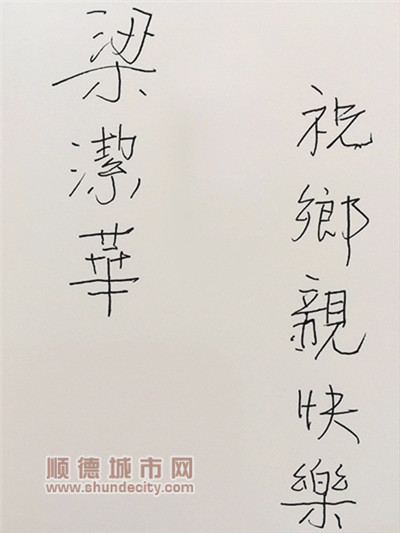 祝鄉親快樂
梁潔華
顺德城市网
www.shundecity.com